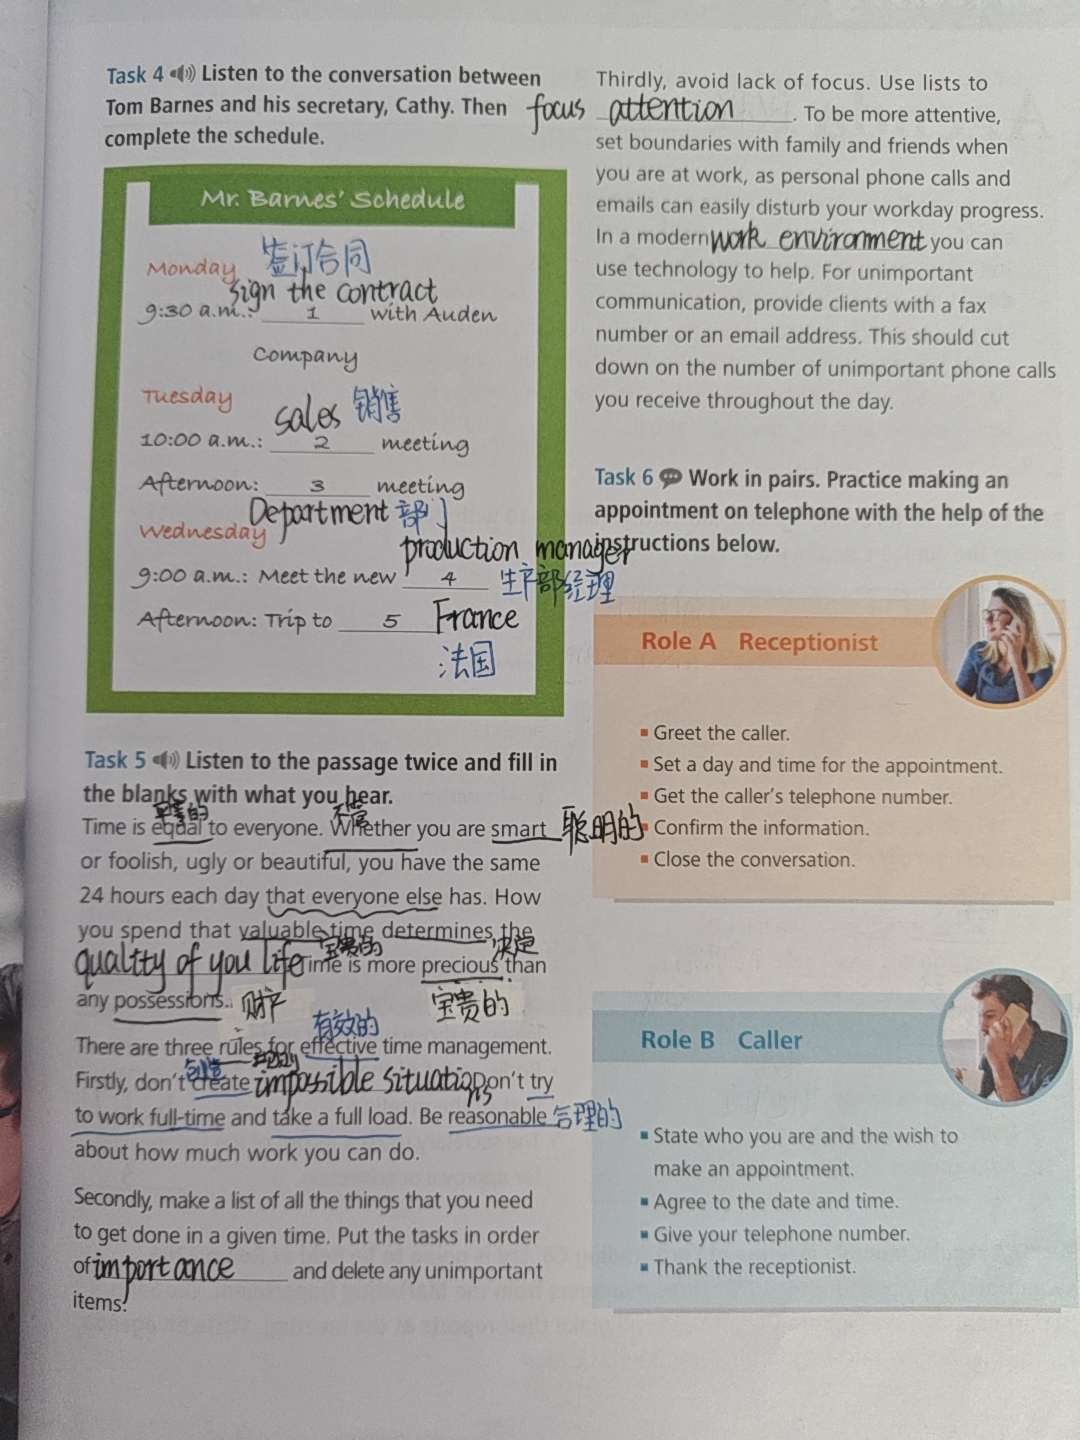 Task 4 Listen to the conversation between
Tom Barnes and his secretary, Cathy. Then
complete the schedule.
Mr. Barnes' Schedule
Monday 签订合同
sign the contract
9:30 a.m.: 1 with Auden
Company
Tuesday
sales 销售
10:00 a.m.: 2 meeting
Afternoon: 3 meeting
Department 部门
Wednesday
production manager
9:00 a.m.: Meet the new 4 生产部经理
Afternoon: Trip to 5 France
法国
Task 5 Listen to the passage twice and fill in
the blanks with what you hear.
平等的 不管
Time is equal to everyone. Whether you are smart 聪明的
or foolish, ugly or beautiful, you have the same
24 hours each day that everyone else has. How
you spend that valuable time determines the
宝贵的 决定
quality of you life Time is more precious than
any possessions. 财产 宝贵的
有效的
There are three rules for effective time management.
创造
Firstly, don't create impossible situations Don't try
to work full-time and take a full load. Be reasonable 合理的
about how much work you can do.
Secondly, make a list of all the things that you need
to get done in a given time. Put the tasks in order
of importance and delete any unimportant
items.
Thirdly, avoid lack of focus. Use lists to
focus attention. To be more attentive,
set boundaries with family and friends when
you are at work, as personal phone calls and
emails can easily disturb your workday progress.
In a modern work environment you can
use technology to help. For unimportant
communication, provide clients with a fax
number or an email address. This should cut
down on the number of unimportant phone calls
you receive throughout the day.
Task 6 Work in pairs. Practice making an
appointment on telephone with the help of the
instructions below.
Role A Receptionist
▪ Greet the caller.
▪ Set a day and time for the appointment.
▪ Get the caller's telephone number.
▪ Confirm the information.
▪ Close the conversation.
Role B Caller
▪ State who you are and the wish to
make an appointment.
▪ Agree to the date and time.
▪ Give your telephone number.
▪ Thank the receptionist.